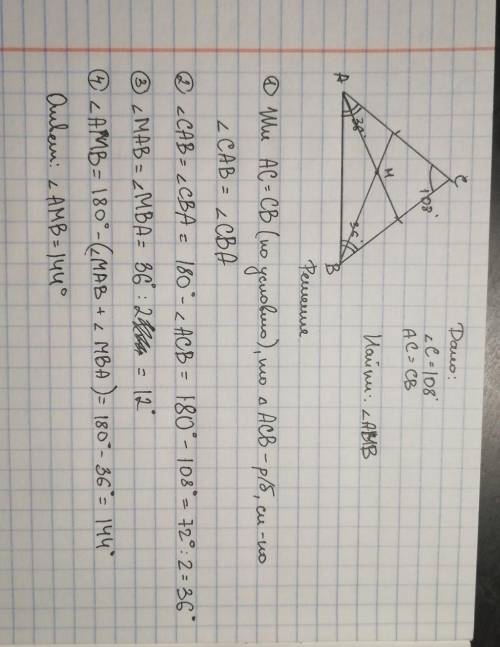 Дано:
∠C = 108°
AC = CB
Найти: ∠AMB
A
38°
M
C
108°
36°
B
Решение
① Т.к AC = CB (по условию), то △ACB – р/б, сл-но
∠CAB = ∠CBA
② ∠CAB = ∠CBA = 180° - ∠ACB = 180° - 108° = 72° : 2 = 36°
③ ∠MAB = ∠MBA = 36° : 2 = 12°
④ ∠AMB = 180° - (∠MAB + ∠MBA) = 180° - 36° = 144°
Ответ: ∠AMB = 144°